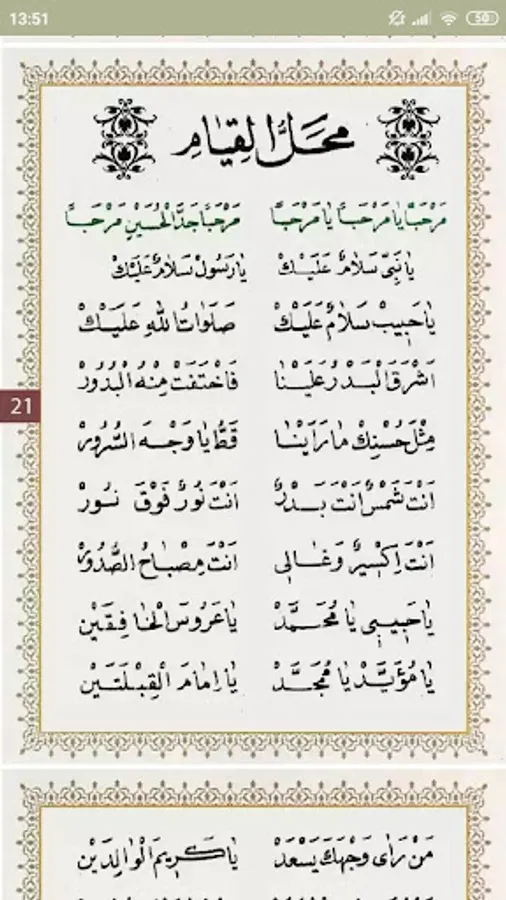 13:51
50
محل القيام
مَرْحَبًا يَا مَرْحَبًا يَا مَرْحَبًا مَرْحَبًا جَدَّ الْحُسَيْنِ مَرْحَبًا
يَا نَبِيْ سَلَامٌ عَلَيْكَ يَا رَسُوْلْ سَلَامٌ عَلَيْكَ
يَا حَبِيبْ سَلَامٌ عَلَيْكَ صَلَوَاتُ اللهِ عَلَيْكَ
اَشْرَقَ الْبَدْرُ عَلَيْنَا فَاخْتَفَتْ مِنْهُ الْبُدُوْرُ
مِثْلَ حُسْنِكْ مَا رَاَيْنَا قَطُّ يَا وَجْهَ السُّرُوْرِ
اَنْتَ شَمْسٌ اَنْتَ بَدْرٌ اَنْتَ نُوْرٌ فَوْقَ نُوْرْ
اَنْتَ اِكْسِيْرٌ وَغَالِي اَنْتَ مِصْبَاحُ الصُّدُوْرْ
21
يَا حَبِيْبِي يَا مُحَمَّدْ يَا عَرُوْسَ الْخَافِقَيْنِ
يَا مُؤَيَّدْ يَا مُمَجَّدْ يَا اِمَامَ الْقِبْلَتَيْنِ
مَنْ رَاَى وَجْهَكَ يَسْعَدْ يَا كَرِيْمَ الْوَالِدَيْنِ